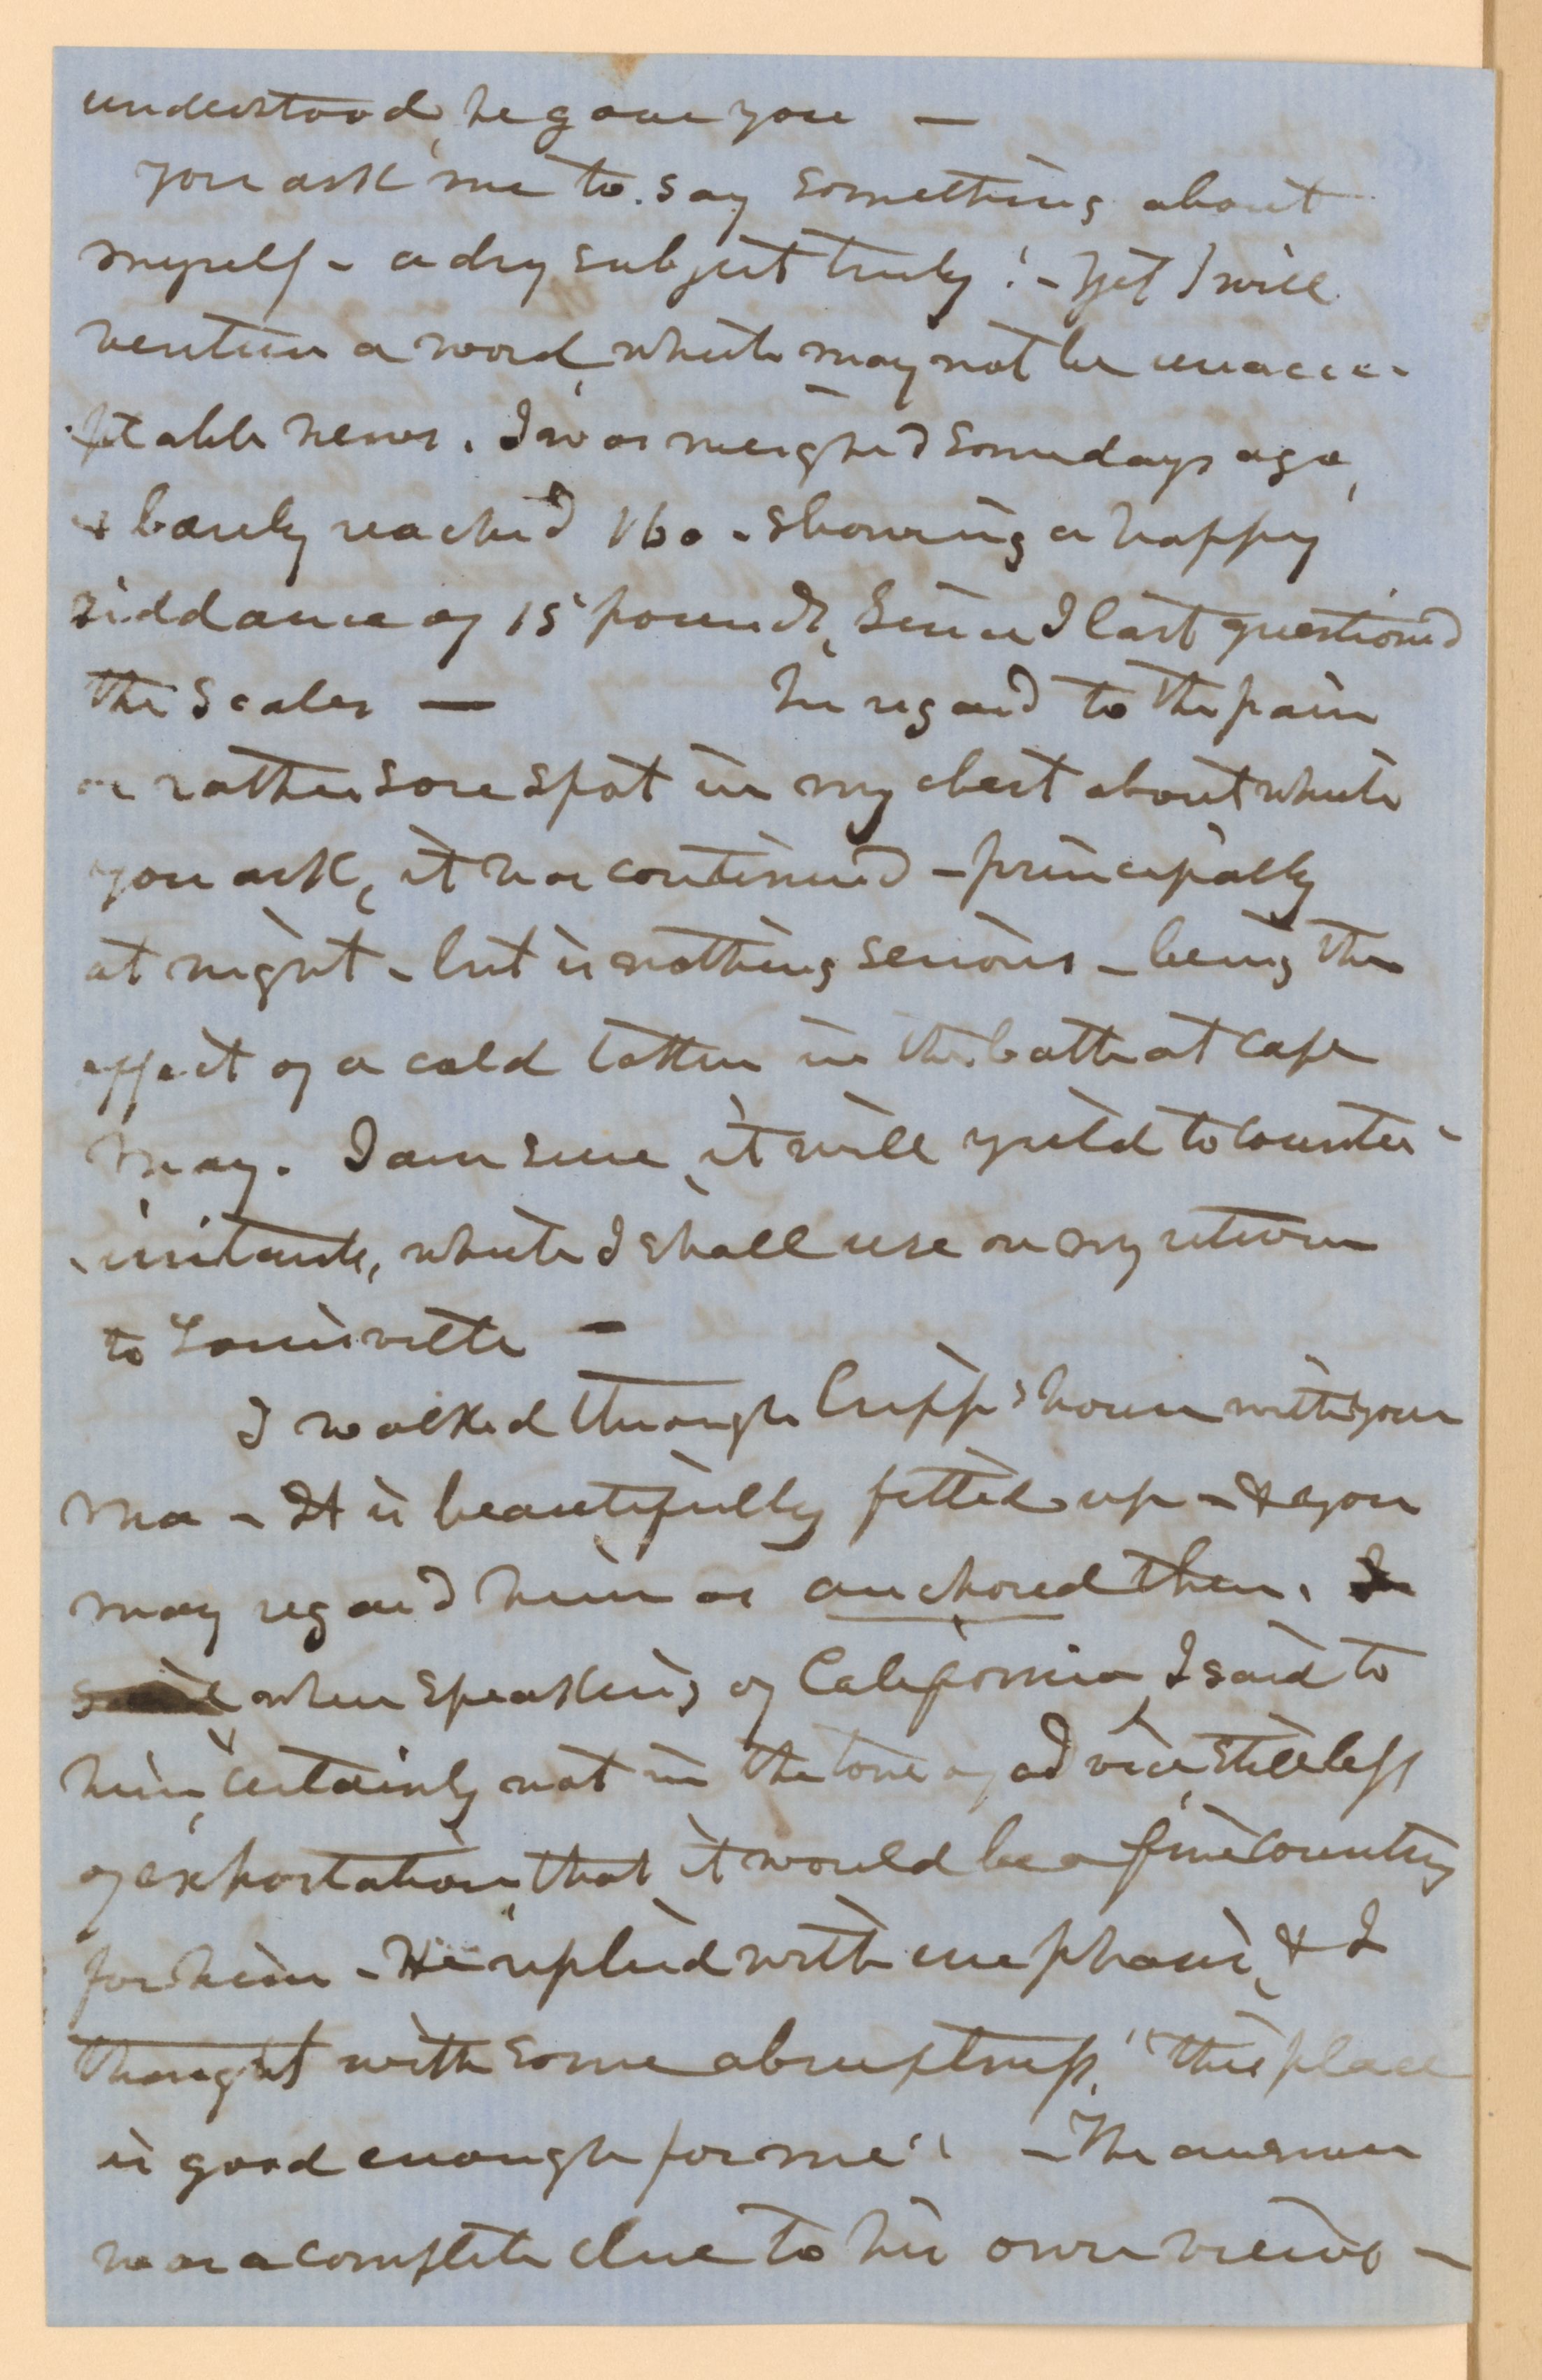 understood, he gave you —
you ask me to say something about
myself - a dry subject truly! - Yet I will
venture a word, which may not be unacce-
-ptable news. I was weighed some days ago,
& barely reached 160 - showing a happy
riddance of 15 pounds, since I last questioned
the scales — In regard to the pain
or rather sore spot in my chest about which
you ask, it has continued - principally
at night - but is nothing serious - being the
effect of a cold taken in the bath at Cape
May. I am sure, it will yield to counter-
-irritants, which I shall use on my return
to Louisville —
I walked through Cripp's house with your
Ma - It is beautifully fitted up - & you
may regard him as anchored there. In
when speaking of California, I said to
him, certainly not in the tone of advice, still less
of exhortation, that it would be a fine country
for him - He replied with emphasis, & I
thought with some abruptness, "this place
is good enough for me" - The answer
was a complete clue to his own views -